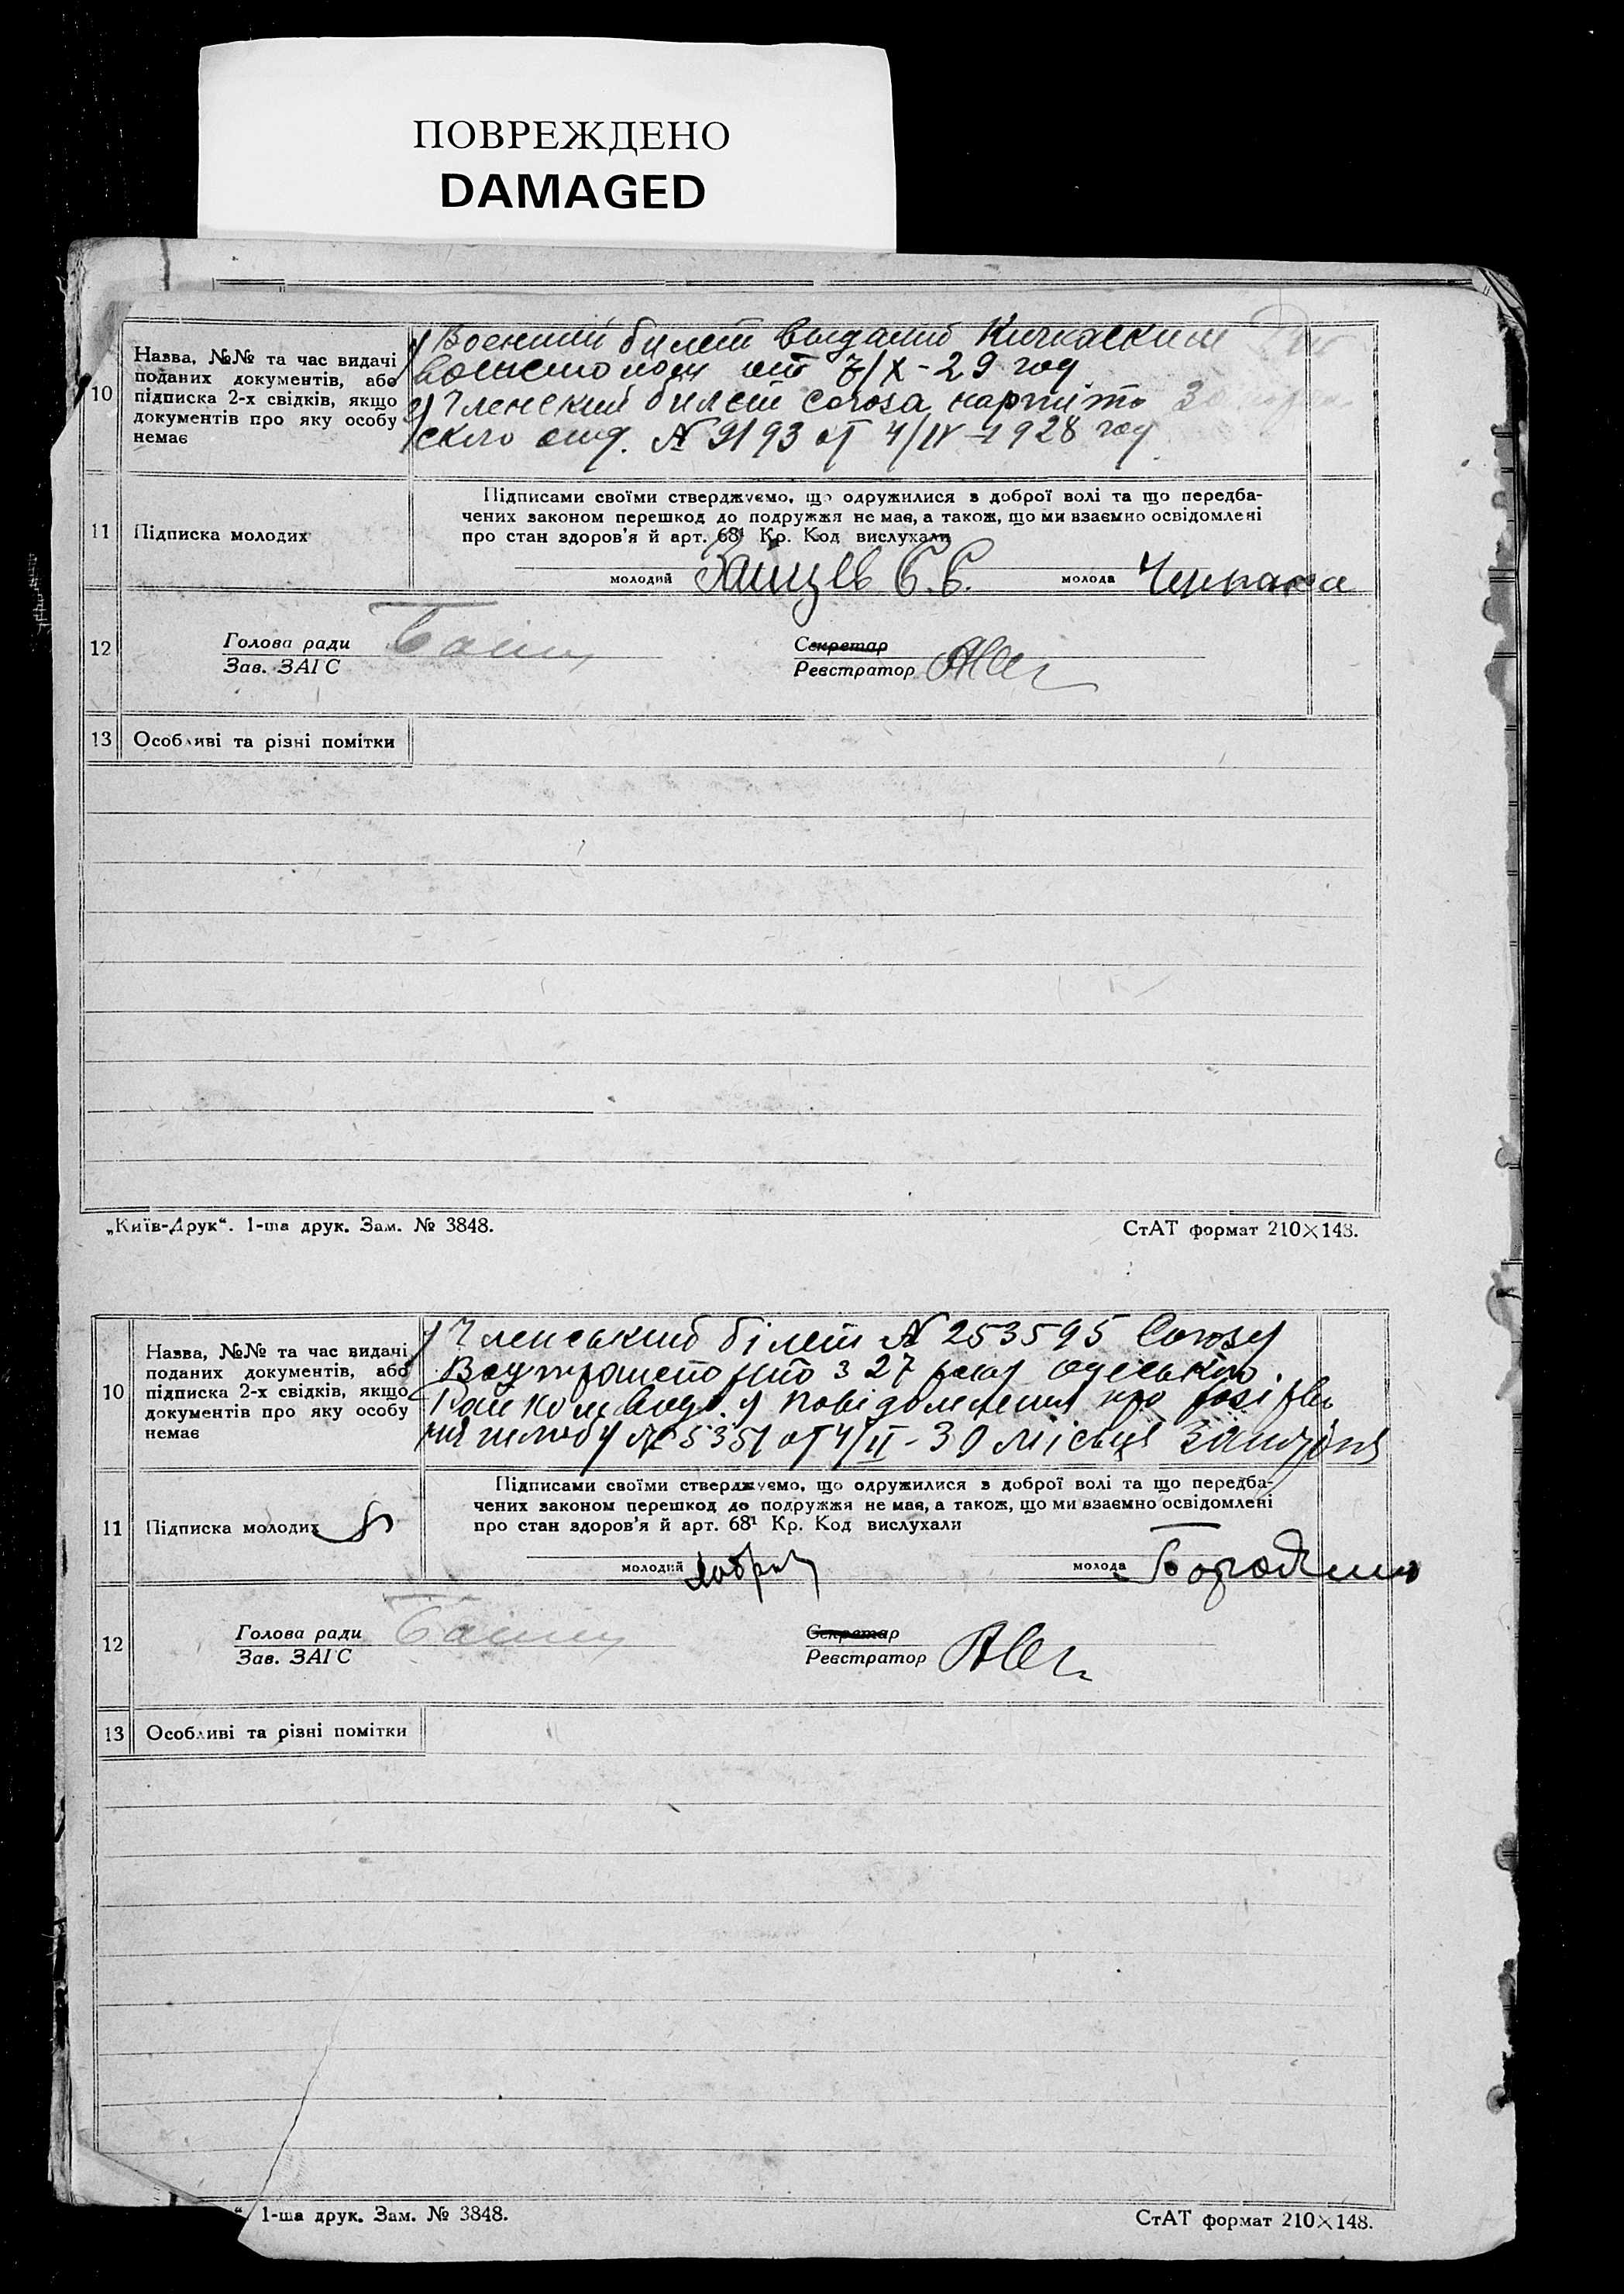 ПОВРЕЖДЕНО
DAMAGED
10
Назва, №№ та час видачі
поданих документів, або
підписка 2-х свідків, якщо
документів про яку особу
немає
Военний билет выданий Кичкаским
военстолом от 7/X-29 год
Членский билет союза нарпіт
отд. № 9193 от 4/IV-1928 год
11
Підписка молодих
Підписами своїми стверджуємо, що одружилися з доброї волі та що передба-
чених законом перешкод до подружжя не має, а також, що ми взаємно освідомлені
про стан здоров'я й арт. 68¹ Кр. Код вислухали
молодий Зайцев Є.Є. молода
12
Голова ради
Зав. ЗАГС
Секретар
Реєстратор
13
Особливі та різні помітки
„Київ-Друк“. 1-ша друк. Зам. № 3848.
СтАТ формат 210×148.
10
Назва, №№ та час видачі
поданих документів, або
підписка 2-х свідків, якщо
документів про яку особу
немає
Членський білет № 253595 Союзу
з 27 року одеського
повідомлення про розірван
ня шлюбу № 5351 от 4/II-30 місця
11
Підписка молодих
Підписами своїми стверджуємо, що одружилися з доброї волі та що передба-
чених законом перешкод до подружжя не має, а також, що ми взаємно освідомлені
про стан здоров'я й арт. 68¹ Кр. Код вислухали
молодий молода
12
Голова ради
Зав. ЗАГС
Секретар
Реєстратор
13
Особливі та різні помітки
“ 1-ша друк. Зам. № 3848.
СтАТ формат 210×148.